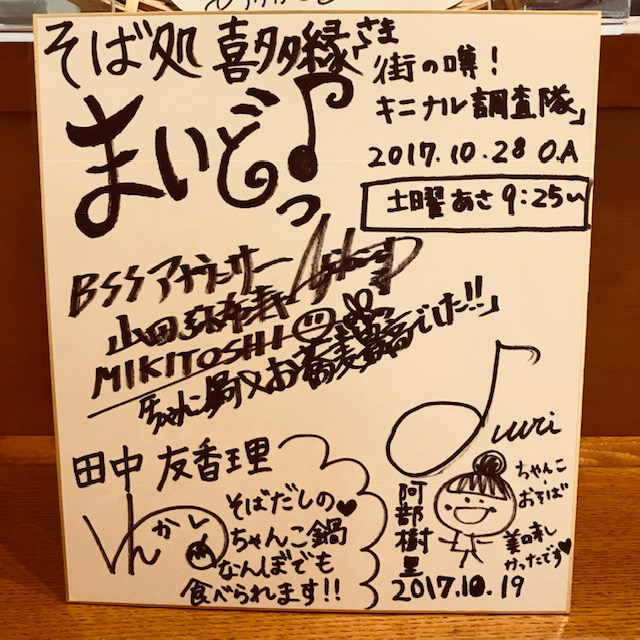 そば処 喜多縁さま
まいどっ♪
街の噂!
キニナル調査隊」
2017.10.28 O.A
土曜あさ9:25〜
BSSアナウンサー
山田
MIKITOSHI
ちゃんこ鍋×お蕎麦最高でした!!」
田中 友香理
そばだしの♥
ちゃんこ鍋
なんぼでも
食べられます!!
Juri
阿部樹里
ちゃんこ
おそば
美味し
かったです♥
2017.10.19